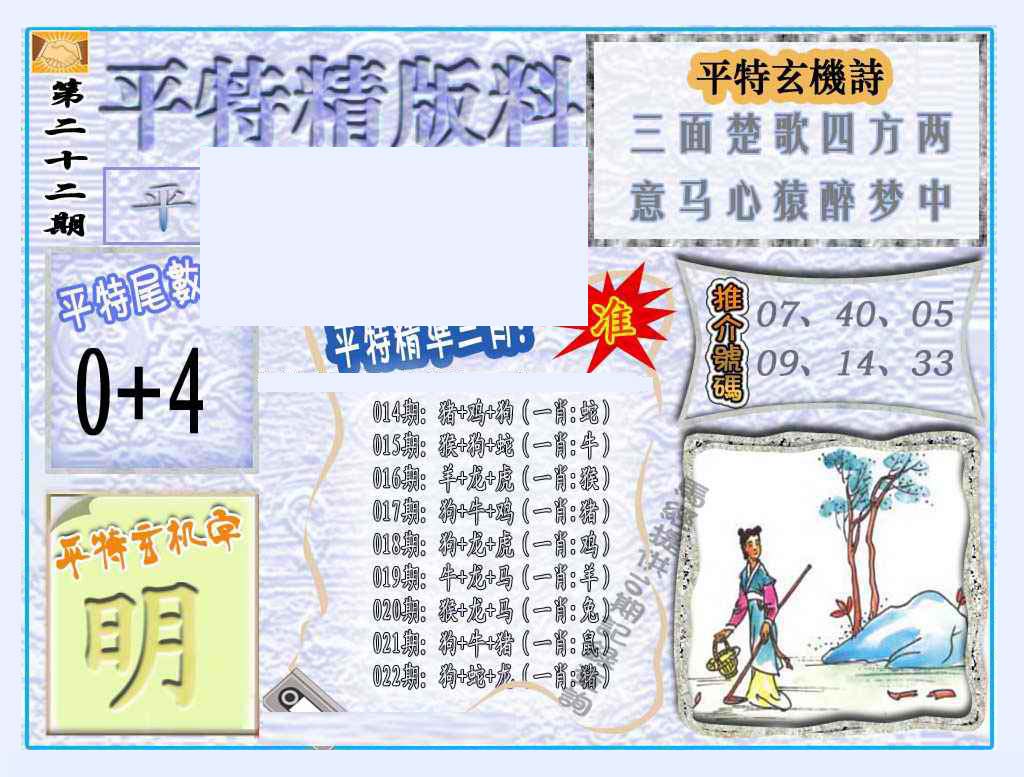 第二十二期
平特精版料
平
平特玄機詩
三面楚歌四方两
意马心猿醉梦中
平特尾數
0+4
平特精準二肖:
准
推介號碼
07、40、05
09、14、33
014期: 猪+鸡+狗(一肖:蛇)
015期: 猴+狗+蛇(一肖:牛)
016期: 羊+龙+虎(一肖:猴)
017期: 狗+牛+鸡(一肖:猪)
018期: 狗+龙+虎(一肖:鸡)
019期: 牛+龙+马(一肖:羊)
020期: 猴+龙+马(一肖:兔)
021期: 狗+牛+猪(一肖:鼠)
022期: 狗+蛇+龙(一肖:猪)
平特玄机字
明